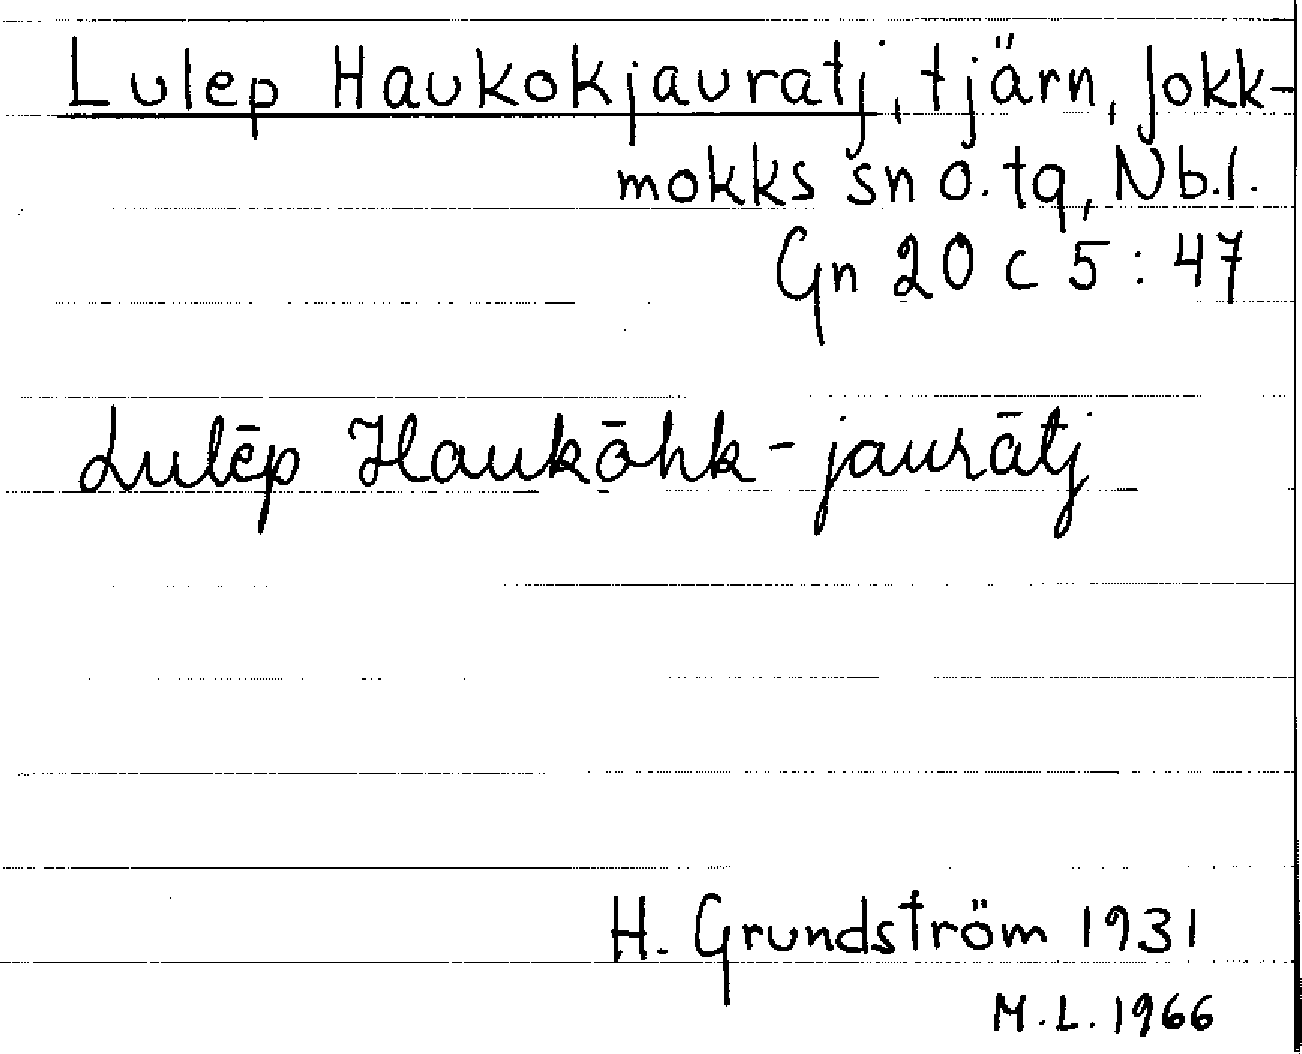 Lulep Haukokjauratj, tjärn, Jokk-
mokks sn o. tg, Nb.l.
Gn 20 c 5 : 47
Lulēp Haukōhk-jaurātj
H. Grundström 1931
M.L. 1966